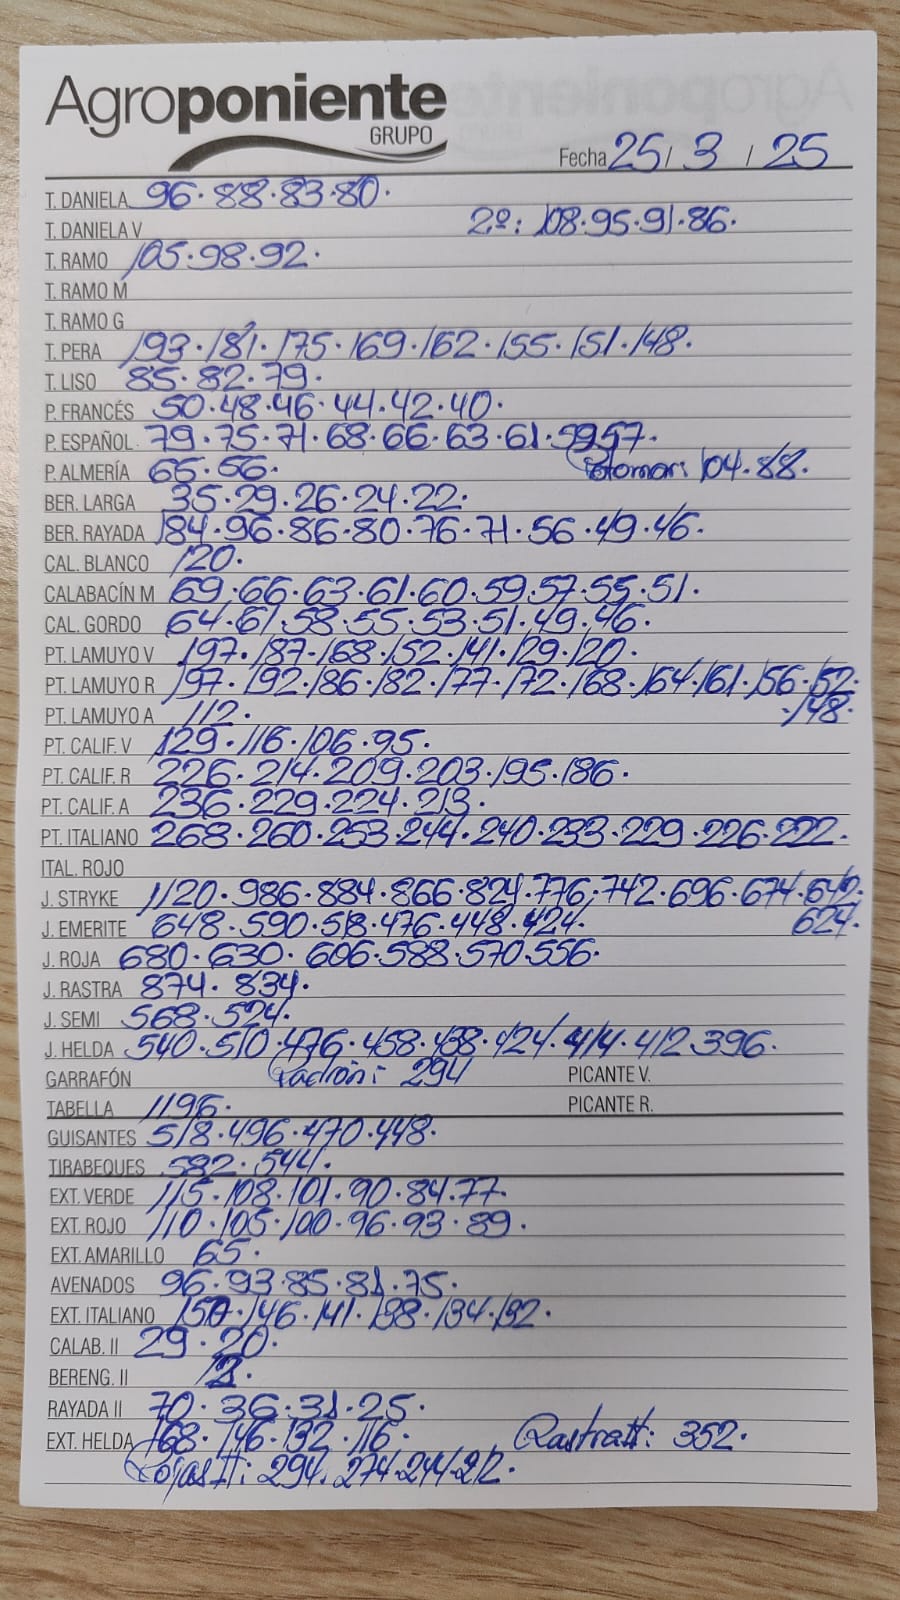 Agroponiente
GRUPO
Fecha 25 / 3 / 25
T. DANELA 96·88·83·80·
T. DANIELA V 2º: 108·95·91·86·
T. RAMO 105·98·92·
T. RAMO M
T. RAMO G
T. PERA 193·181·175·169·162·155·151·148·
T. LISO 85·82·79·
P. FRANCÉS 50·48·46·44·42·40·
P. ESPAÑOL 79·75·71·68·66·63·61·59·57·
P. ALMERÍA 65·56· 104·88·
BER. LARGA 35·29·26·24·22·
BER. RAYADA 184·96·86·80·76·71·56·49·46·
CAL. BLANCO 120·
CALABACÍN M 69·66·63·61·60·59·57·55·51·
CAL. GORDO 64·61·58·55·53·51·49·46·
PT. LAMUYO V 197·187·168·152·141·129·120·
PT. LAMUYO R 197·192·186·182·177·172·168·164·161·156·152·
PT. LAMUYO A 112· ·148·
PT. CALIF. V 129·116·106·95·
PT. CALIF. R 226·214·209·203·195·186·
PT. CALIF. A 236·229·224·213·
PT. ITALIANO 268·260·253·244·240·233·229·226·222·
ITAL. ROJO
J. STRYKE 1120·986·884·866·824·776·742·696·674·642·
J. EMERITE 648·590·518·476·448·424· 624·
J. ROJA 680·630·606·588·570·556·
J. RASTRA 874·834·
J. SEMI 568·524·
J. HELDA 540·510·476·458·438·424·414·412·396·
GARRAFÓN Padrón: 294 PICANTE V.
TABELLA 1196· PICANTE R.
GUISANTES 518·496·470·448·
TIRABEQUES 582·544·
EXT. VERDE 115·108·101·90·84·77·
EXT. ROJO 110·105·100·96·93·89·
EXT. AMARILLO 65·
AVENADOS 96·93·85·81·75·
EXT. ITALIANO 150·146·141·138·134·132·
CALAB. II 29·20·
BERENG. II
RAYADA II 70·36·31·25·
EXT. HELDA 168·146·132·116· Rastra II: 352·
Rojas II: 294·274·244·212·